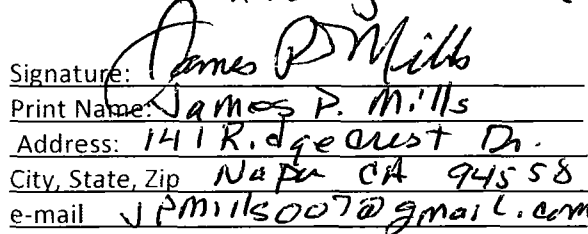 Signature: James P Mills
Print Name: James P. Mills
Address: 141 Ridgecrest Dr.
City, State, Zip Napa CA 94558
e-mail jpmills007@gmail.com